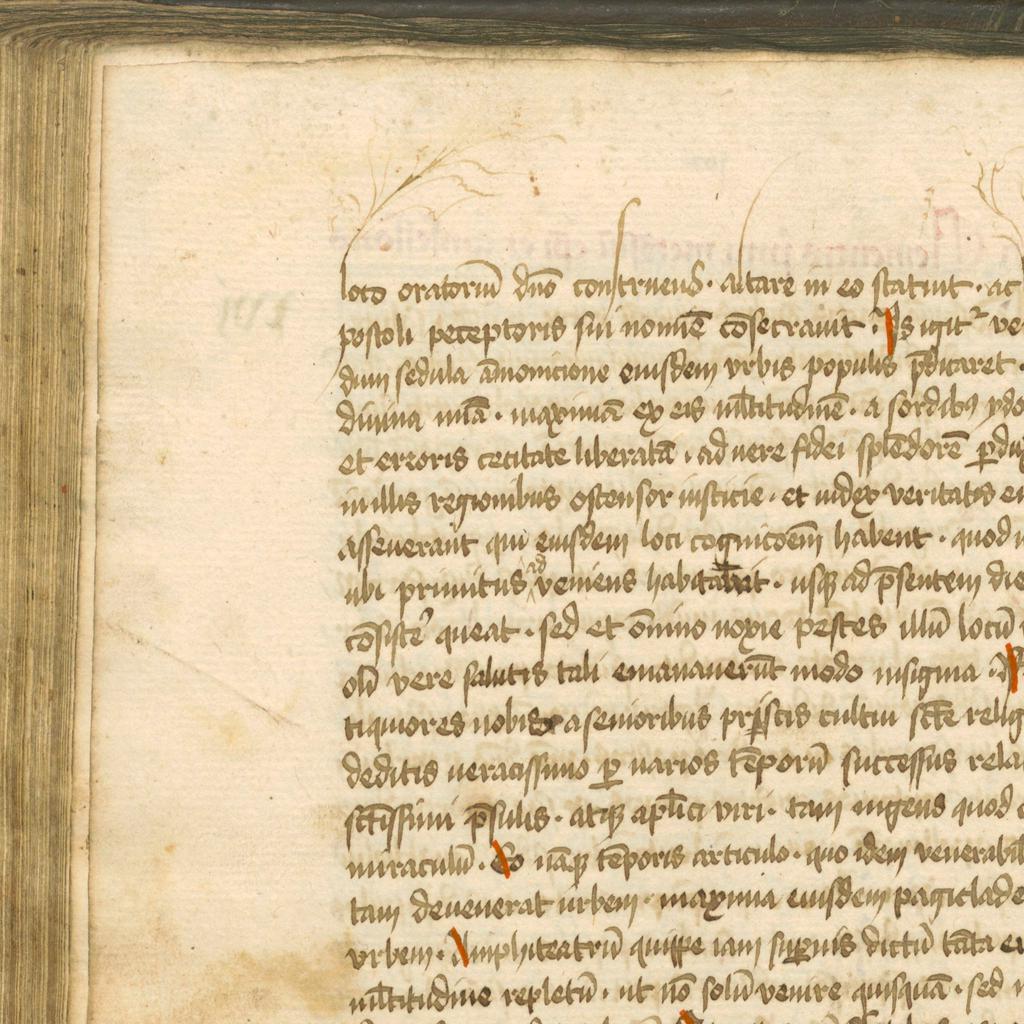 loco oratoriū dn̄o construens · altare in eo statuit · ac
postoli p̄ceptoris sui nomīe cōsecrauit · Is igitᷣ ve
dum sedula āmonicione eiusdem vrbis populis p̄dicaret ·
diuina mīa · maximā ex eis ml̄titudinē · a sordibꝯ ydo
et erroris cecitate liberatā · ad vere fidei splēdorē ꝑdux
in illis regionibus ostensor iusticie · et iudex veritatis
asseuerant qui eiusdem loci cognicōem habent · quod
ubi primitus ad veniens habitauit · usqꝫ ad p̄sentem die
cōsistere queat · sed et ōmino noxie pestes illū locū
olī vere salutis tali emanauerūt modo insignia ·
tiquiores nobis a senioribus priscis cultui sctē relig
deditis ueracissimo ꝑ uarios tēporū successus rela
sctīssimi p̄sulis · atqꝫ apl̄ici viri · tam ingens quod
miraculū · Eo nāqꝫ tēporis articulo · quo idem venerabil
tam deuenerat urbem · maxima eiusdem pagi clade
vrbem · Amphiteatrū quippe iam suꝑius dictū tāta
ml̄titudine repletū · ut nō solū venire quisquā · sed